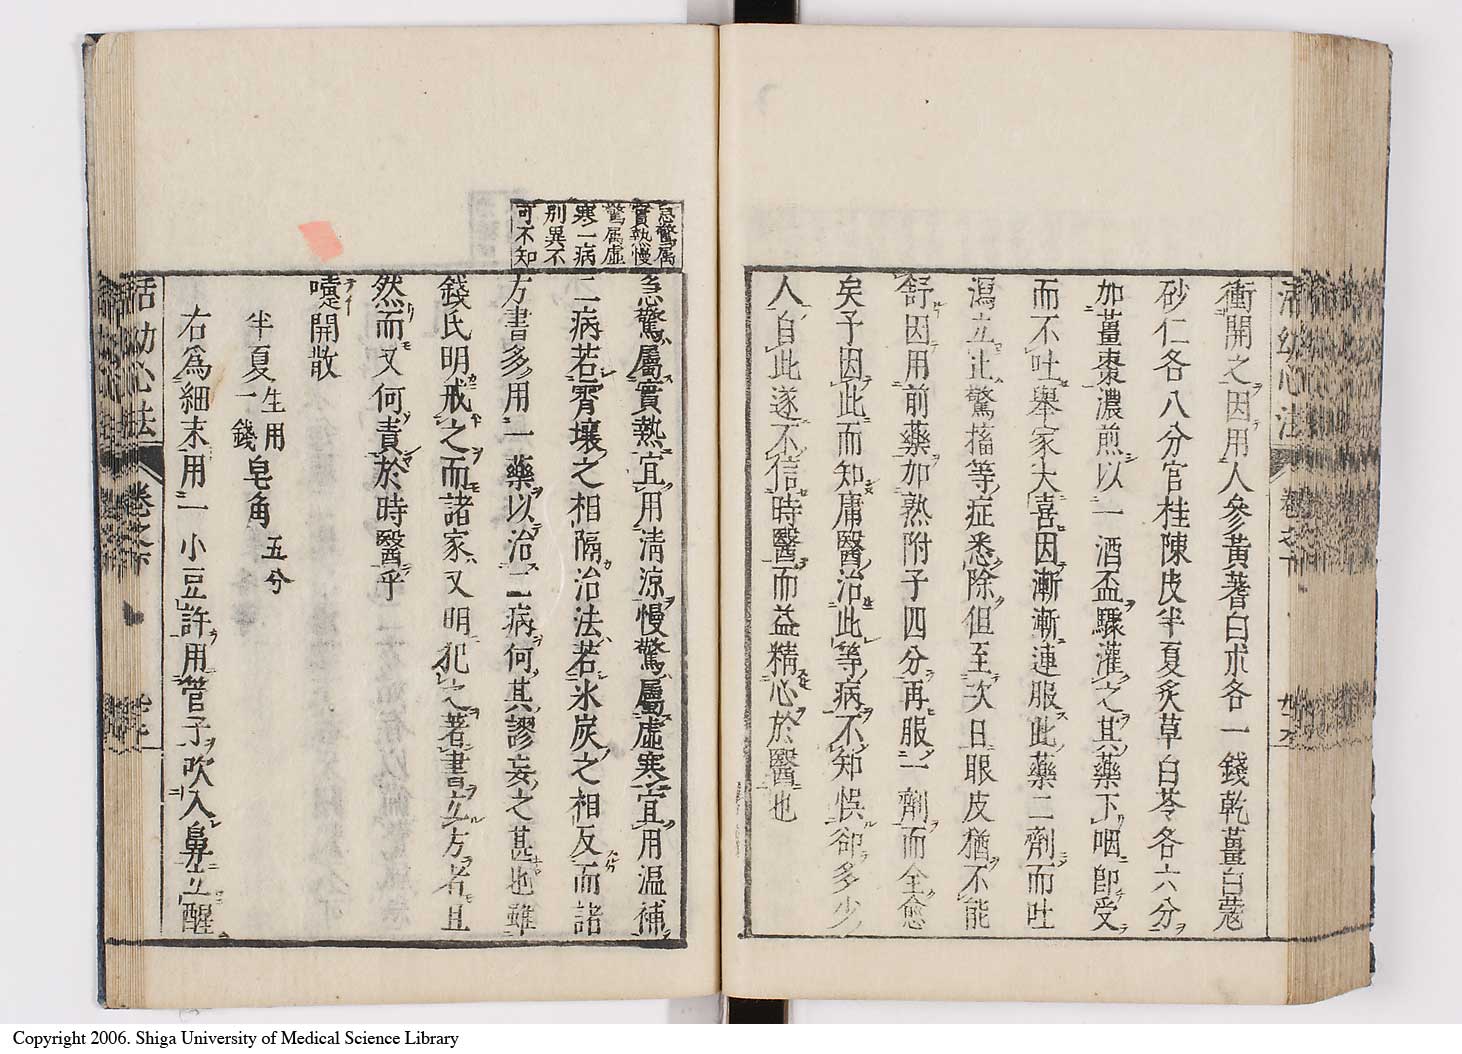 衝開之因用人參黃蓍白朮各一錢乾薑白蔻
砂仁各八分官桂陳皮半夏炙草白苓各六分
加薑棗濃煎以一酒盃驟灌之其藥下咽卽受
而不吐舉家大喜因漸漸連服此藥二劑而吐
瀉立止驚搐等症悉除但至次日眼皮猶不能
舒因用前藥加熟附子四分再服一劑而全愈
矣予因此而知庸醫治此等病不知悞卻多少
人自此遂不信時醫而益精心於醫也
急驚屬
實熱慢
驚屬虛
寒一病
別異不
可不知
急驚屬實熱宜用清涼慢驚屬虛寒宜用温補
二病若霄壤之相隔治法若氷炭之相反而諸
方書多用一藥以治二病何其謬妄之甚也雖
錢氏明戒之而諸家又明犯之著書立方者且
然而又何責於時醫乎
嚏開散
半夏生用一錢 皂角五分
右爲細末用一小豆許用管子吹入鼻立醒
活幼心法
卷之下
Copyright 2006. Shiga University of Medical Science Library